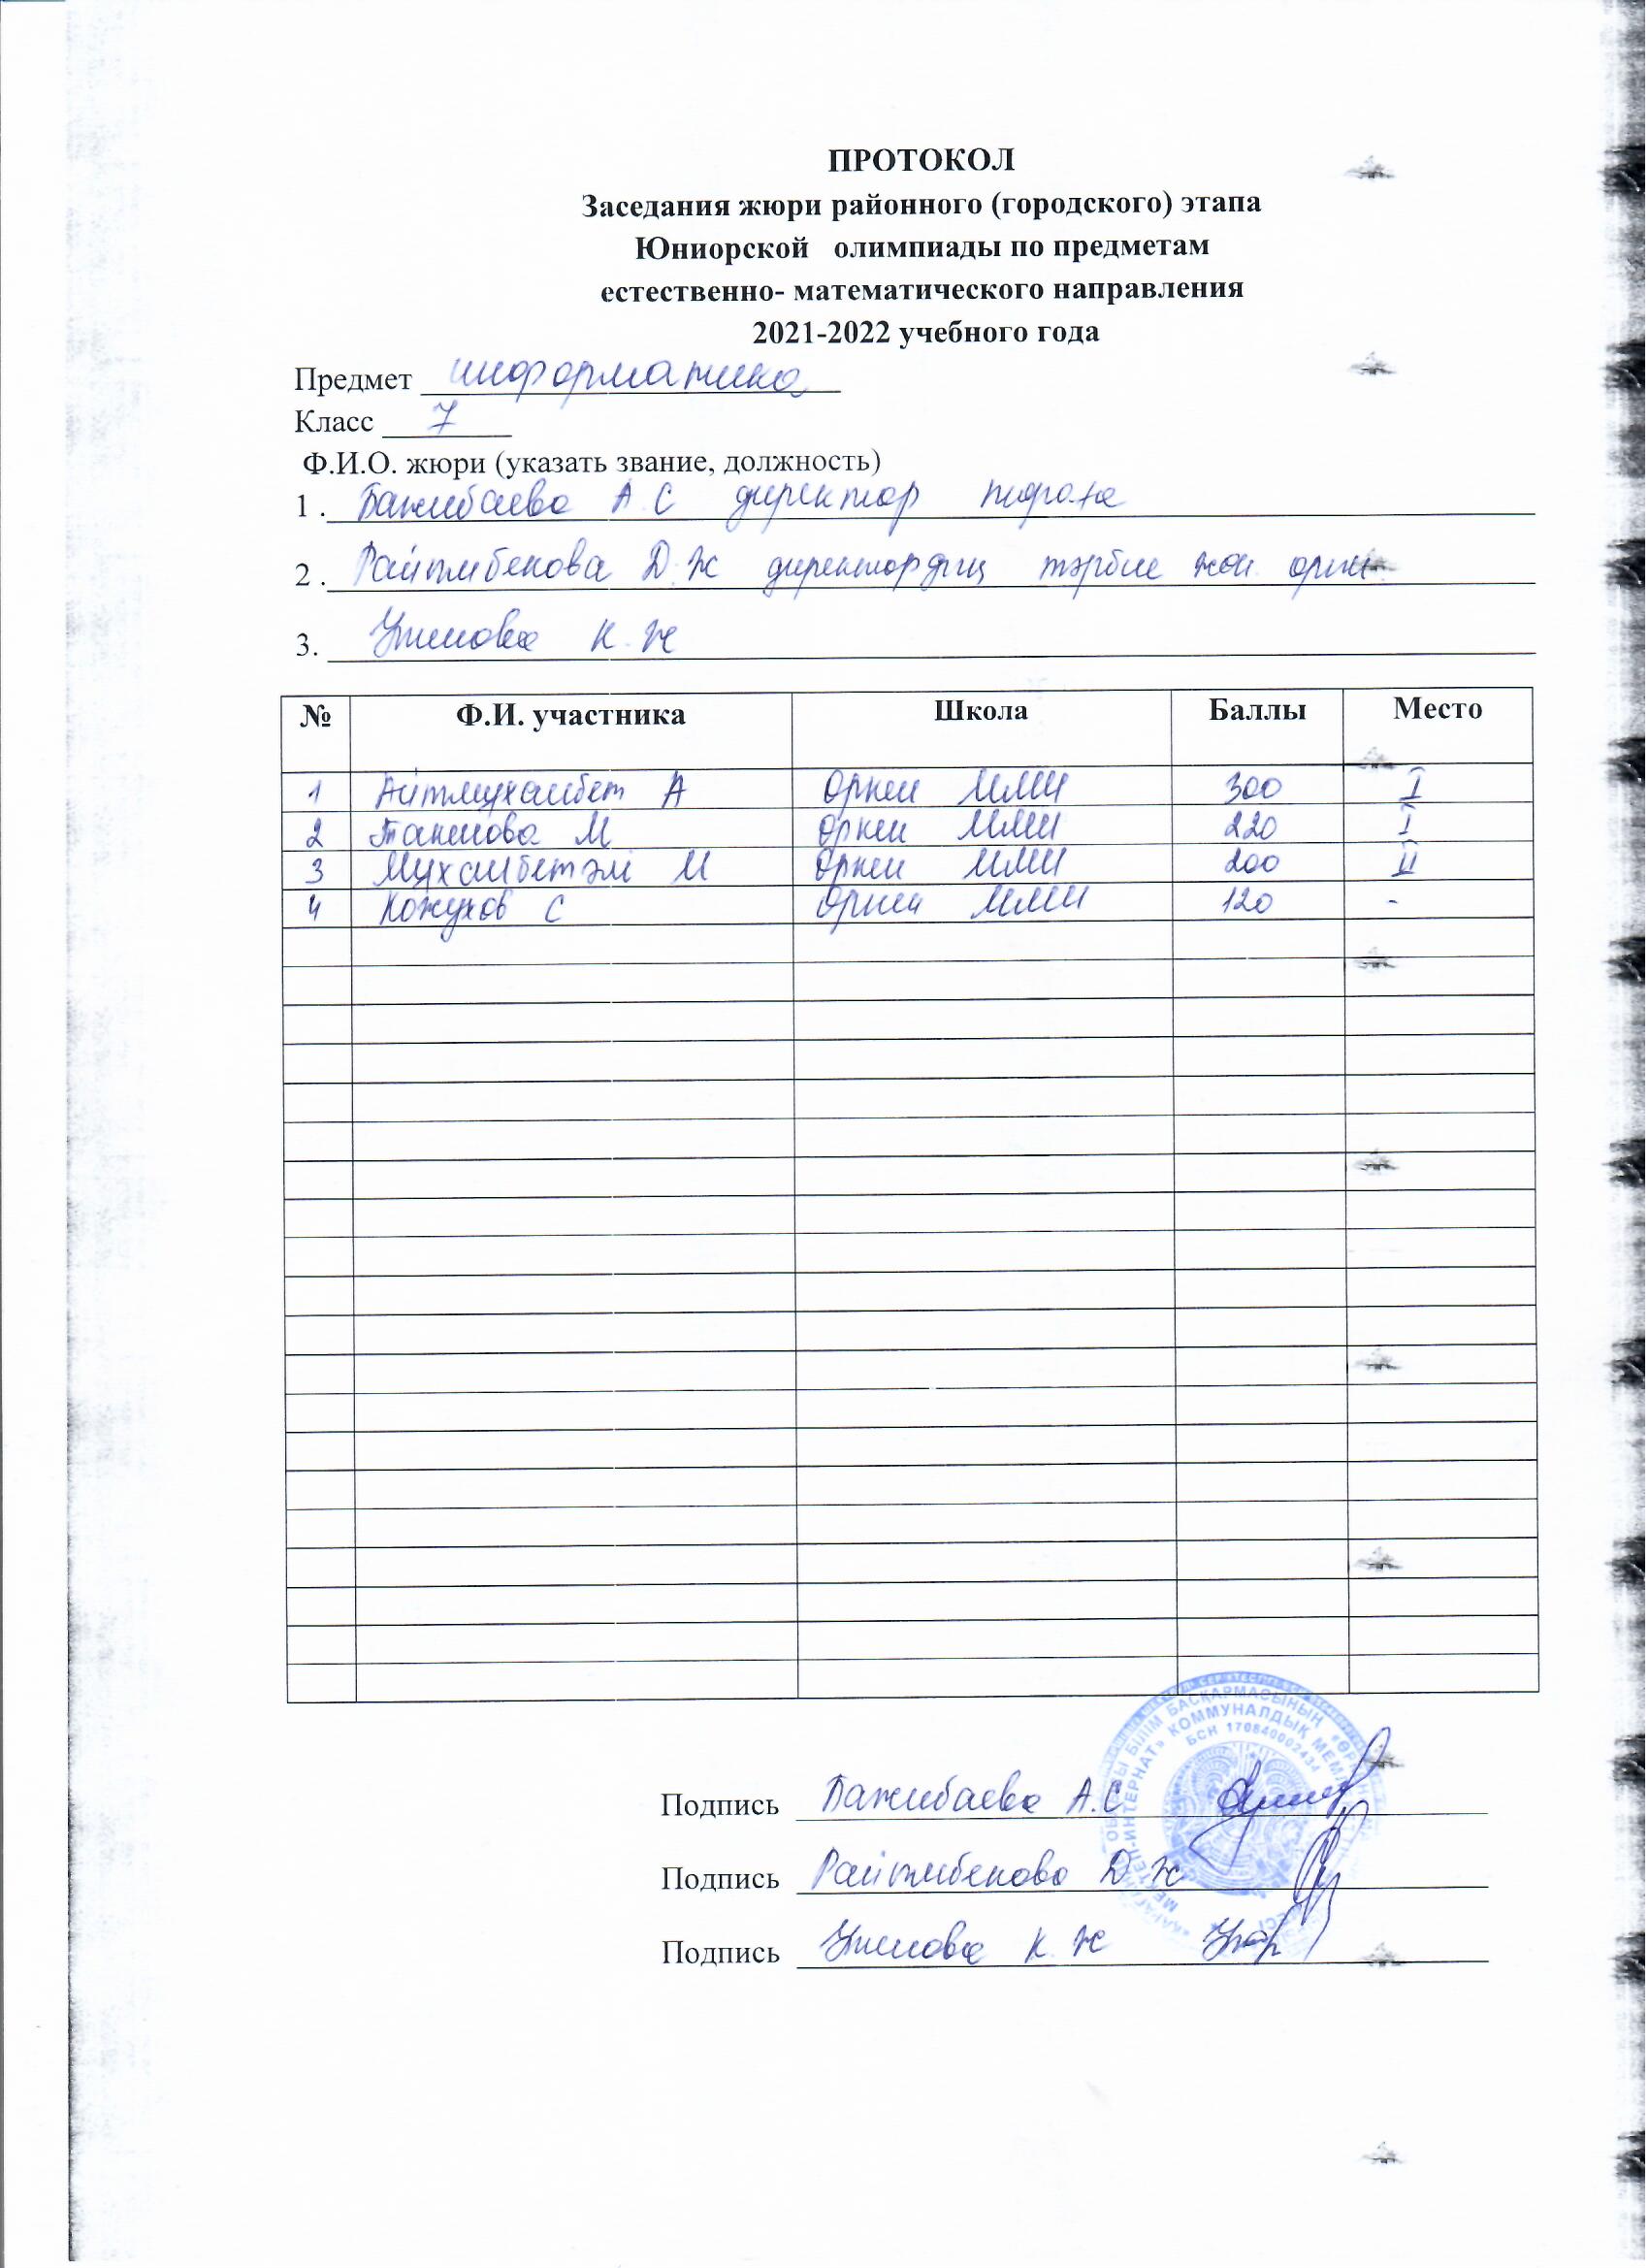 ПРОТОКОЛ
Заседания жюри районного (городского) этапа
Юниорской олимпиады по предметам
естественно- математического направления
2021-2022 учебного года
Предмет информатика
Класс 7
Ф.И.О. жюри (указать звание, должность)
1 . Бажибаева А.С директор
2 . Райымбекова Д.Ж директордың тәрбие жөн орын
3. К.Ж
№ Ф.И. участника Школа Баллы Место
1 Айтмухамбет А Өркен ММИ 300 I
2 М Өркен ММИ 220 I
3 Мухамбетәлі М Өркен ММИ 200 II
4 Кожухов С Өркен ММИ 120 -
БІЛІМ БАСҚАРМАСЫНЫҢ
МЕКТЕП-ИНТЕРНАТ» КОММУНАЛДЫҚ
БСН
Подпись Бажибаева А.С
Подпись Райымбекова Д.Ж
Подпись К.Ж